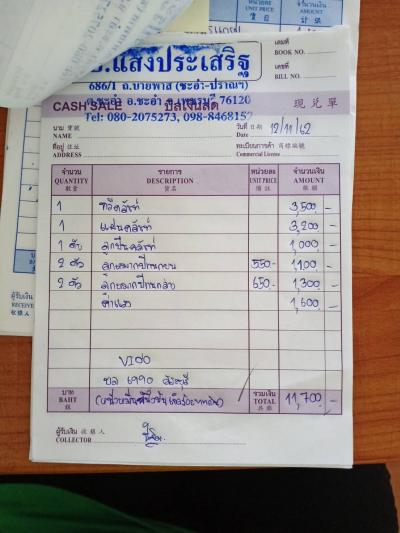 อ.แสงประเสริฐ
686/1 ถ.บายพาส (ชะอำ-ปราณฯ)
ต.ชะอำ อ.ชะอำ จ.เพชรบุรี 76120
Tel: 080-2075273, 098-8468152
เล่มที่
BOOK NO.
เลขที่
BILL NO.
CASH SALE บิลเงินสด 現兌單
นาม 寶號
NAME
วันที่ 日期 12/11/62
ที่อยู่ 住址
ADDRESS
ทะเบียนการค้า 商標編號
Commercial License
จำนวน รายการ หน่วยละ จำนวนเงิน
QUANTITY DESCRIPTION UNIT PRICE AMOUNT
數量 貨名 價註 銀額
1 หวีคลัทช์ 3,500 -
1 แผ่นคลัทช์ 3,200 -
1 ตัว ลูกปืนคลัทช์ 1,000 -
2 ตัว ลูกหมากปีกนกบน 550- 1,100 -
2 ตัว ลูกหมากปีกนกล่าง 650- 1,300 -
ค่าแรง 1,600 -
VIGO
6990
บาท รวมเงิน
BAHT (หนึ่งหมื่นหนึ่งพันเจ็ดร้อยบาทถ้วน) TOTAL 11,700 -
銖 共銀
ผู้รับเงิน 收銀人
COLLECTOR